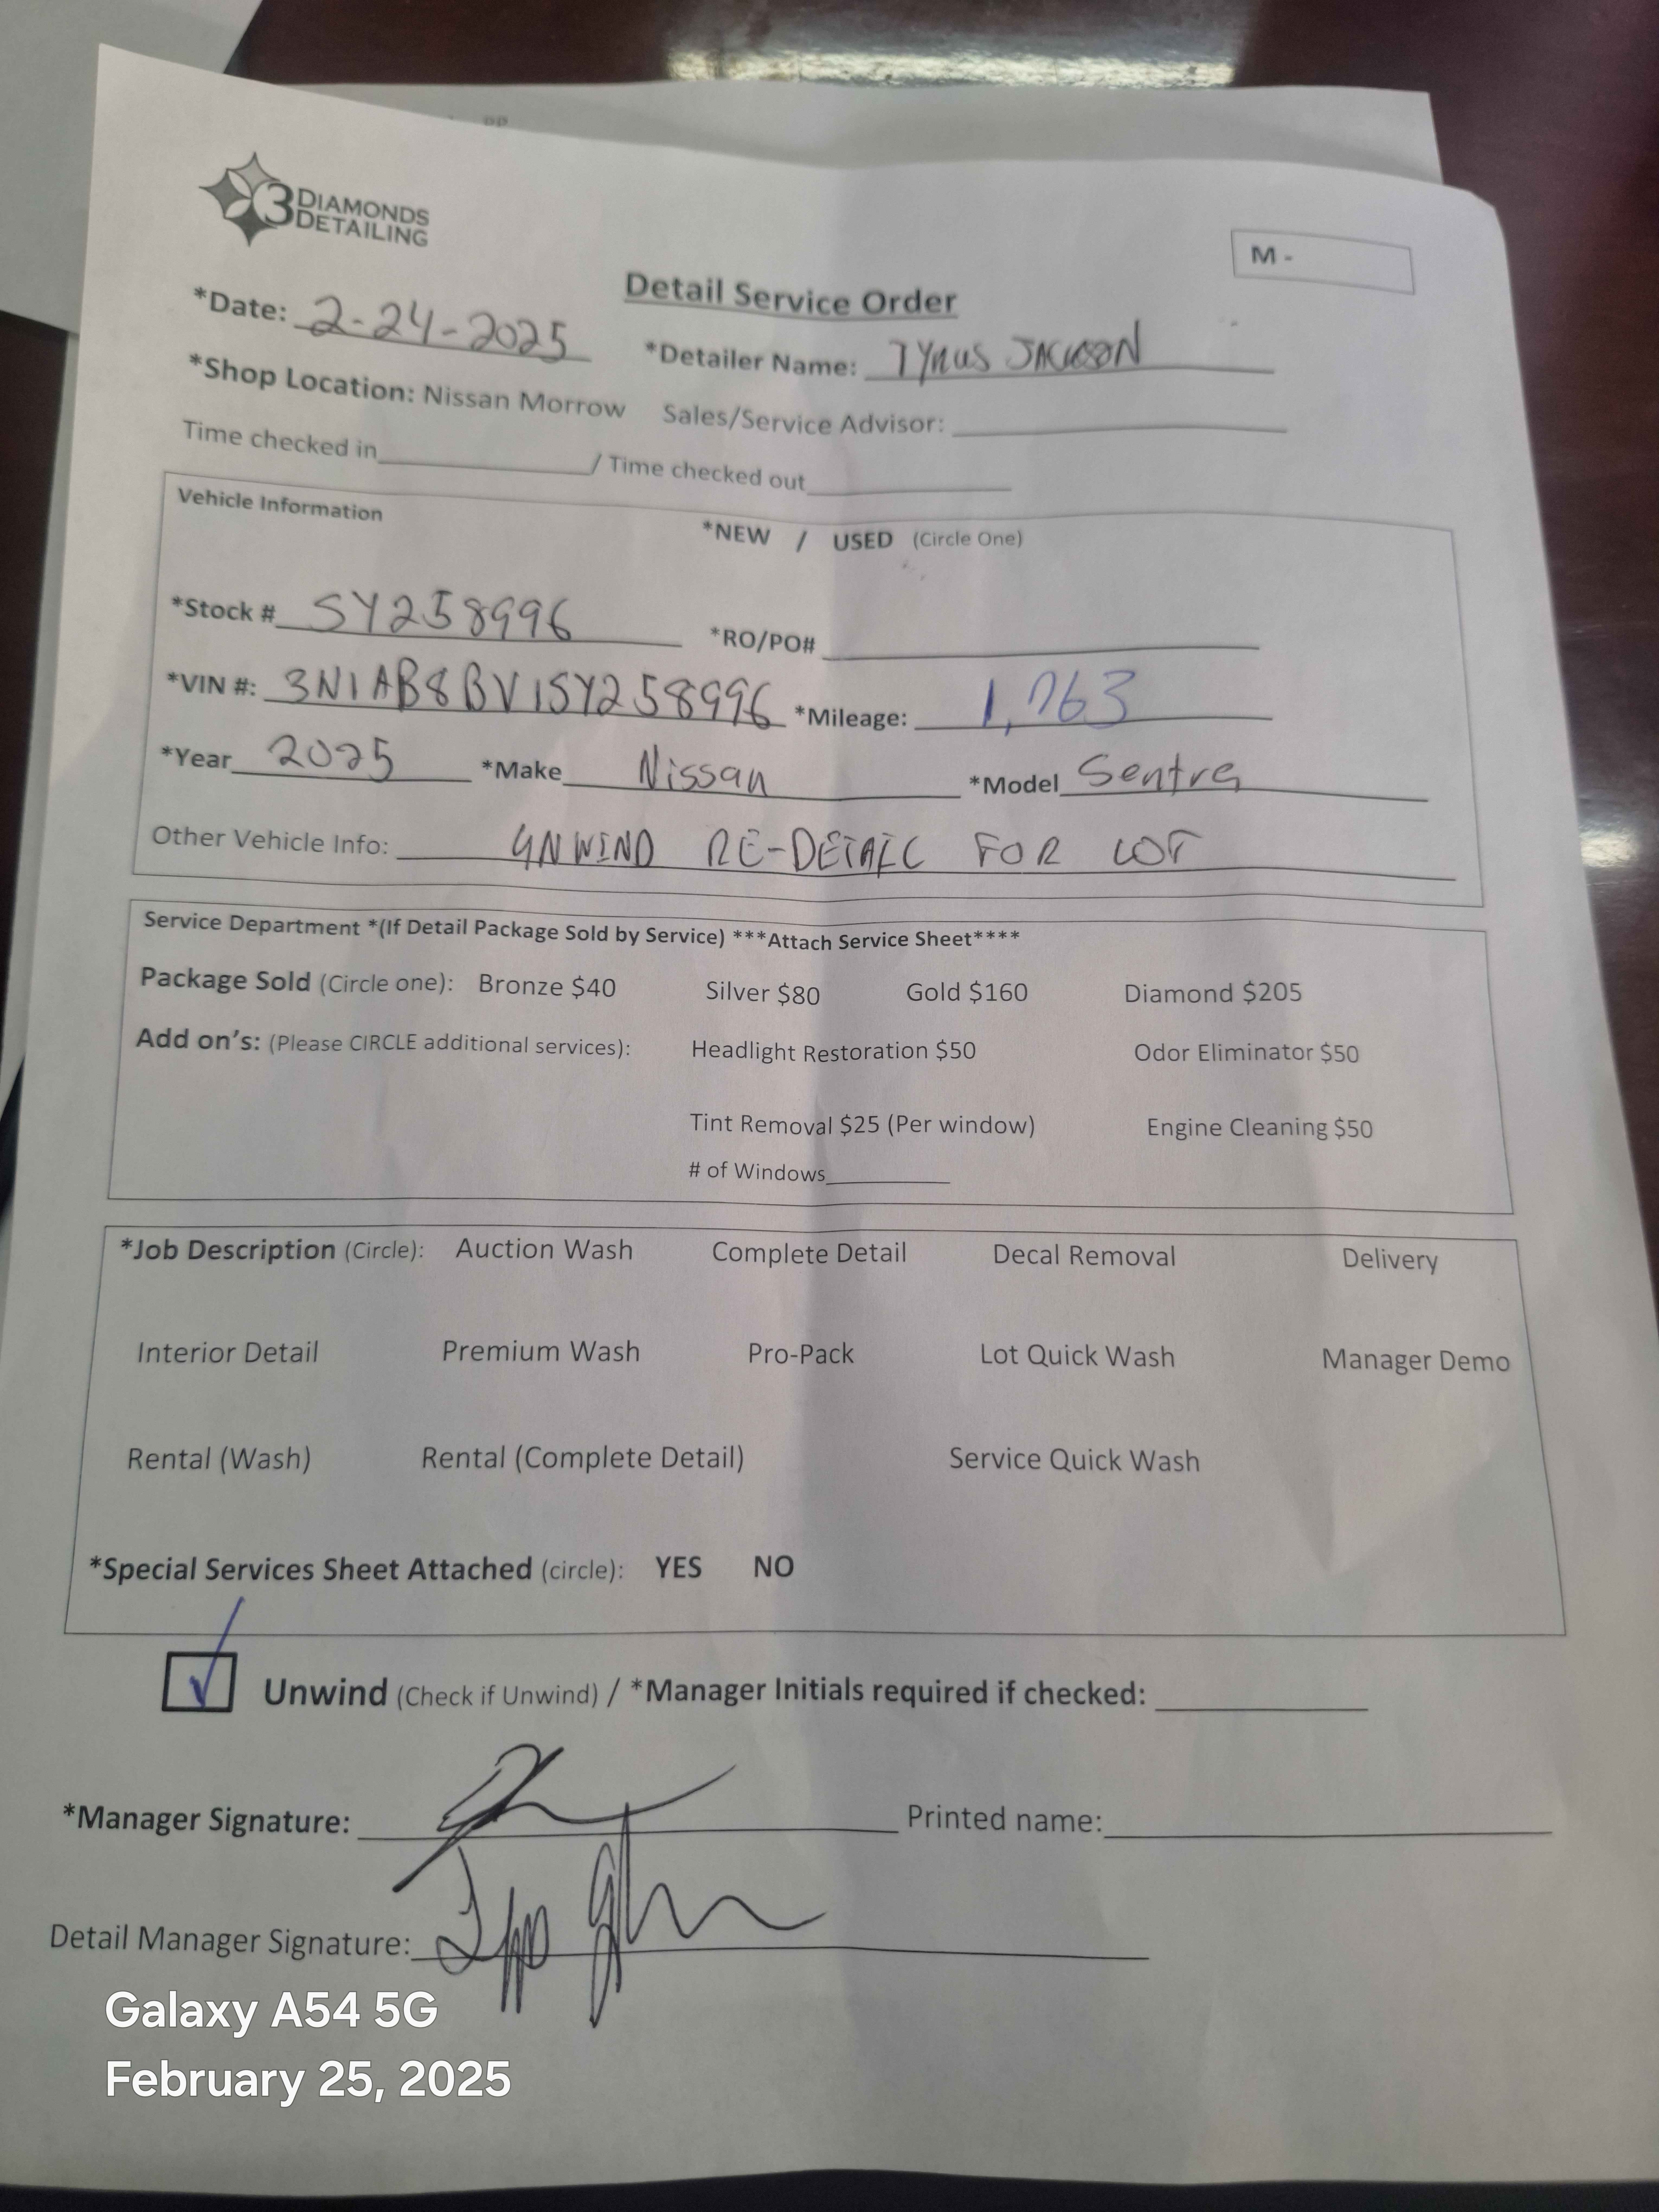 3 DIAMONDS
DETAILING
M -
Detail Service Order
*Date: 2-24-2025 *Detailer Name: TYRUS JACKSON
*Shop Location: Nissan Morrow Sales/Service Advisor:
Time checked in / Time checked out
Vehicle Information
*NEW / USED (Circle One)
*Stock # SY258996 *RO/PO#
*VIN #: 3N1AB8BV1SY258996 *Mileage: 1,763
*Year 2025 *Make Nissan *Model Sentra
Other Vehicle Info: UNWIND RE-DETAIL FOR LOT
Service Department *(If Detail Package Sold by Service) ***Attach Service Sheet****
Package Sold (Circle one): Bronze $40 Silver $80 Gold $160 Diamond $205
Add on's: (Please CIRCLE additional services): Headlight Restoration $50 Odor Eliminator $50
Tint Removal $25 (Per window) Engine Cleaning $50
# of Windows
*Job Description (Circle): Auction Wash Complete Detail Decal Removal Delivery
Interior Detail Premium Wash Pro-Pack Lot Quick Wash Manager Demo
Rental (Wash) Rental (Complete Detail) Service Quick Wash
*Special Services Sheet Attached (circle): YES NO
Unwind (Check if Unwind) / *Manager Initials required if checked:
*Manager Signature: Printed name:
Detail Manager Signature:
Galaxy A54 5G
February 25, 2025